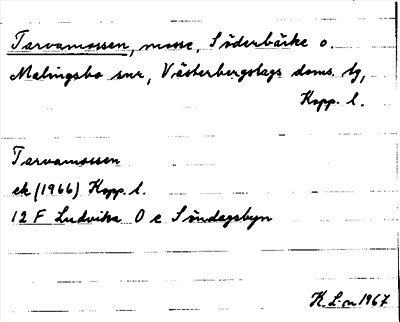 Tarvamossen, mosse, Söderbärke o.
Malingsbo snr, Västerbergslags doms. tg,
Kopp. l.
Tarvamossen
ek (1966) Kopp. l.
12 F Ludvika O e Söndagsbyn
K. L-n 1967